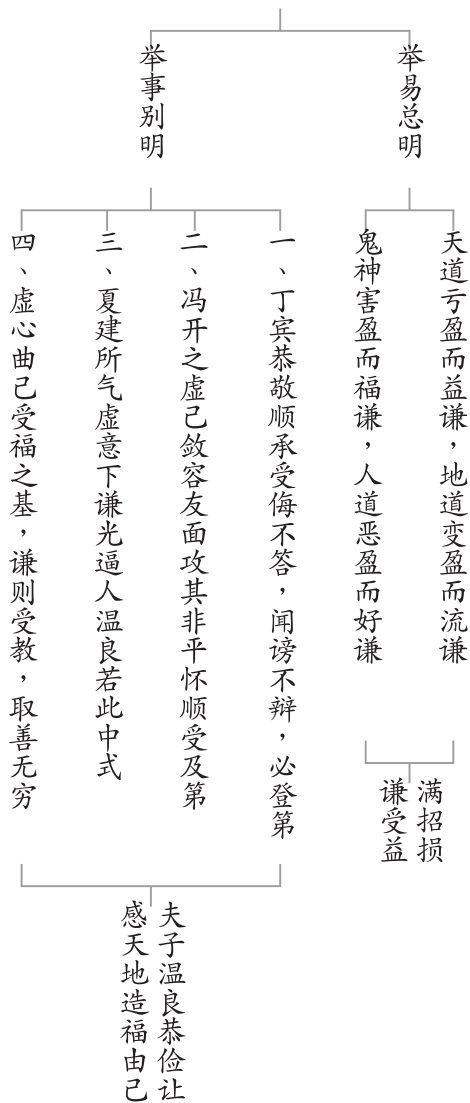 举易总明
天道亏盈而益谦，地道变盈而流谦
鬼神害盈而福谦，人道恶盈而好谦
满招损
谦受益
举事别明
一、丁宾恭敬顺承受侮不答，闻谤不辩，必登第
二、冯开之虚己敛容友面攻其非平怀顺受及第
三、夏建所气虚意下谦光逼人温良若此中式
四、虚心曲己受福之基，谦则受教，取善无穷
夫子温良恭俭让
感天地造福由己